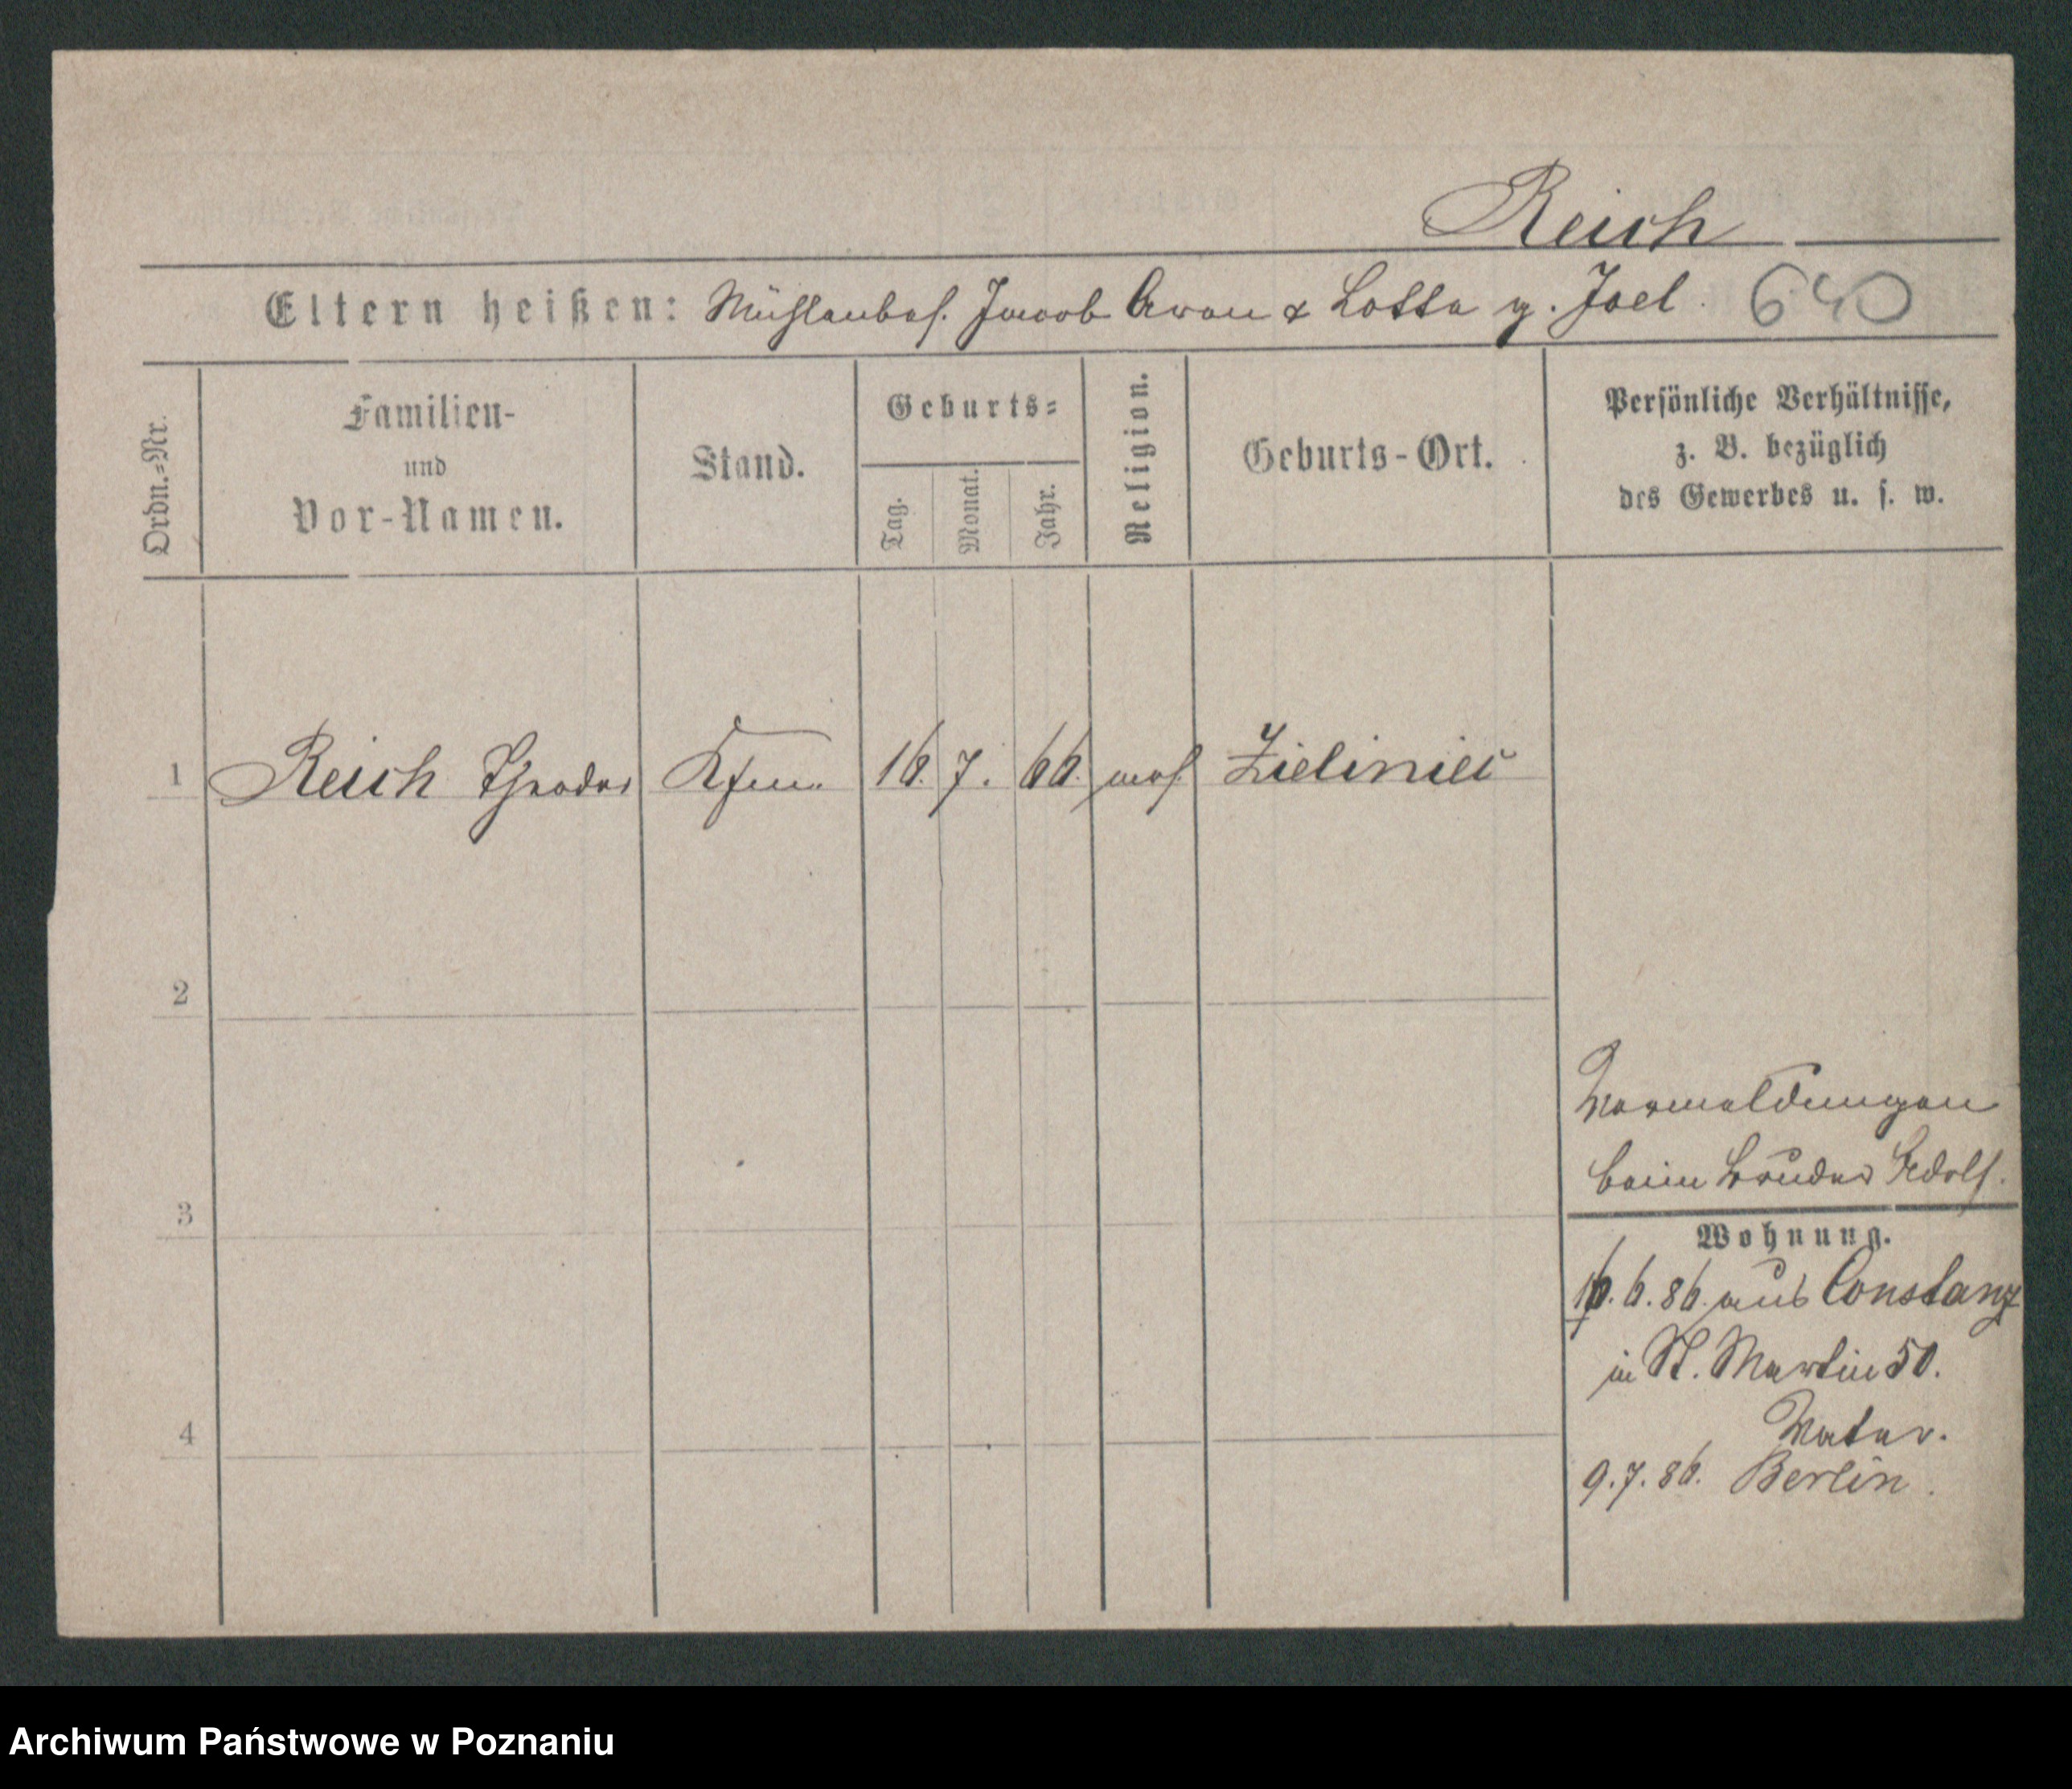 Reich
Eltern heißen: Mühlenbes. Jacob Aron & Lotte g. Joel. 640
Ordn.=Nr.
Familien-
und
Vor-Namen.
Stand.
Geburts=
Tag.
Monat.
Jahr.
Religion.
Geburts-Ort.
Persönliche Verhältnisse,
z. B. bezüglich
des Gewerbes u. s. w.
1 Reich Theodor Kfm. 16. 7. 66. mos. Zieliniec
2
3
4
Vormeldungen
beim Bruder Adolf.
Wohnung.
16. 6. 86. aus Constanz
in St. Martin 50.
Vater.
9. 7. 86. Berlin.
Archiwum Państwowe w Poznaniu